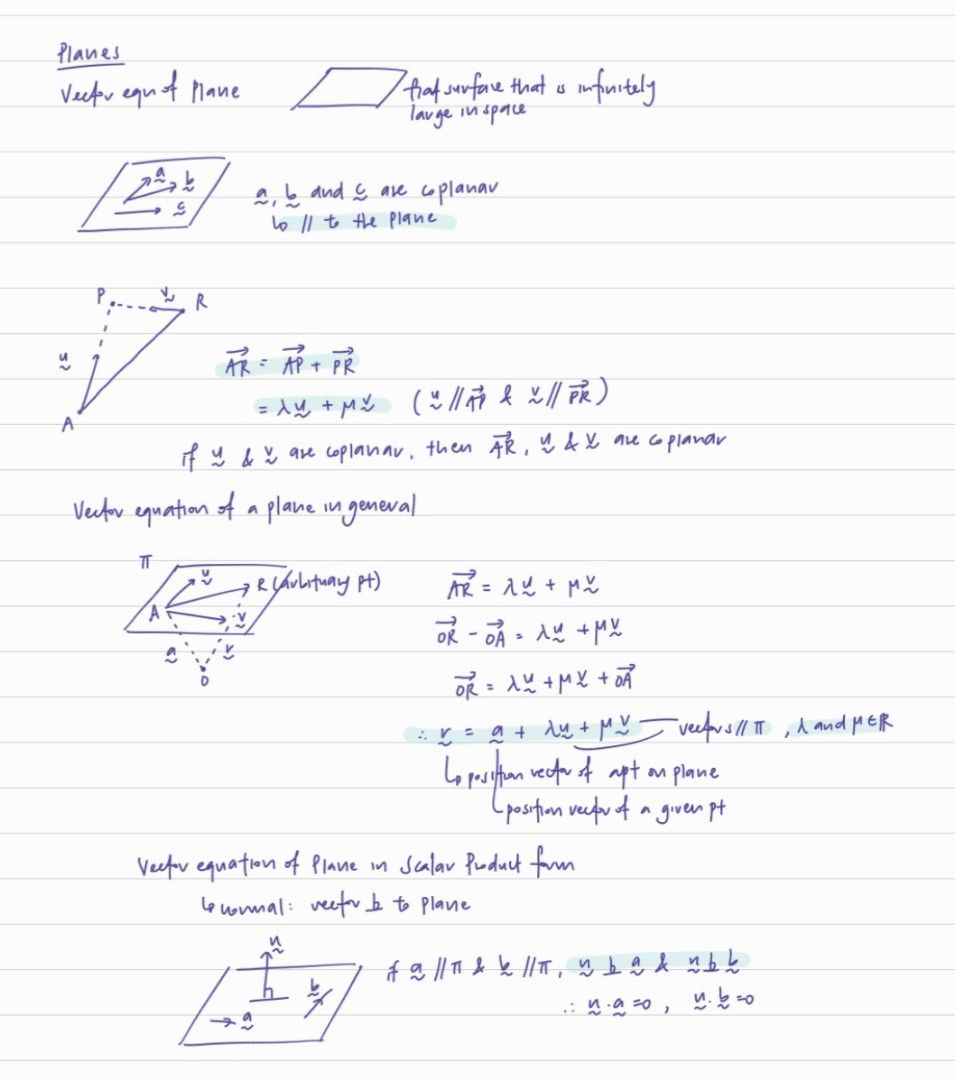 Planes
Vector eqn of Plane
flat surface that is infinitely
large in space
a b
c
a, b and c are coplanar
↳ // to the plane
P v R
u
A
AR = AP + PR
= λu + μv (u // AP & v // PR)
if u & v are coplanar, then AR, u & v are coplanar
Vector equation of a plane in general
π
u R (arbitrary pt)
A v
a r
O
AR = λu + μv
OR - OA = λu + μv
OR = λu + μv + OA
∴ r = a + λu + μv vectors // π, λ and μ ∈ ℝ
↳ position vector of a pt on plane
position vector of a given pt
Vector equation of Plane in Scalar Product form
↳ normal: vector ⊥ to plane
n
b
a
if a // π & b // π, n ⊥ a & n ⊥ b
∴ n · a = 0, n · b = 0